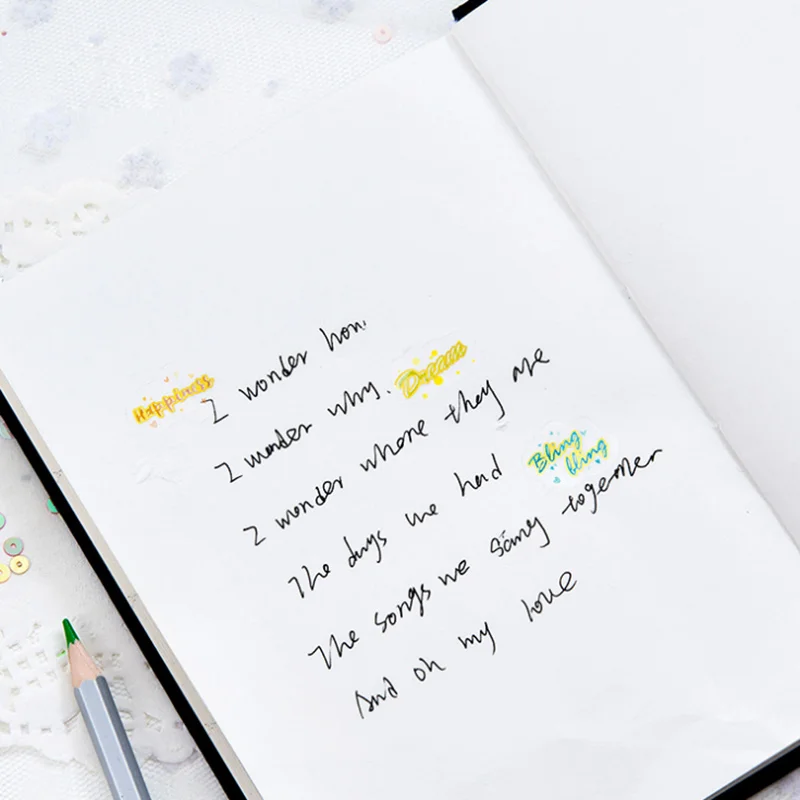 Happiness
I wonder how
I wonder why. Dream
I wonder where they are
The days we had
Bling
bling
The songs we sang together
And oh my love